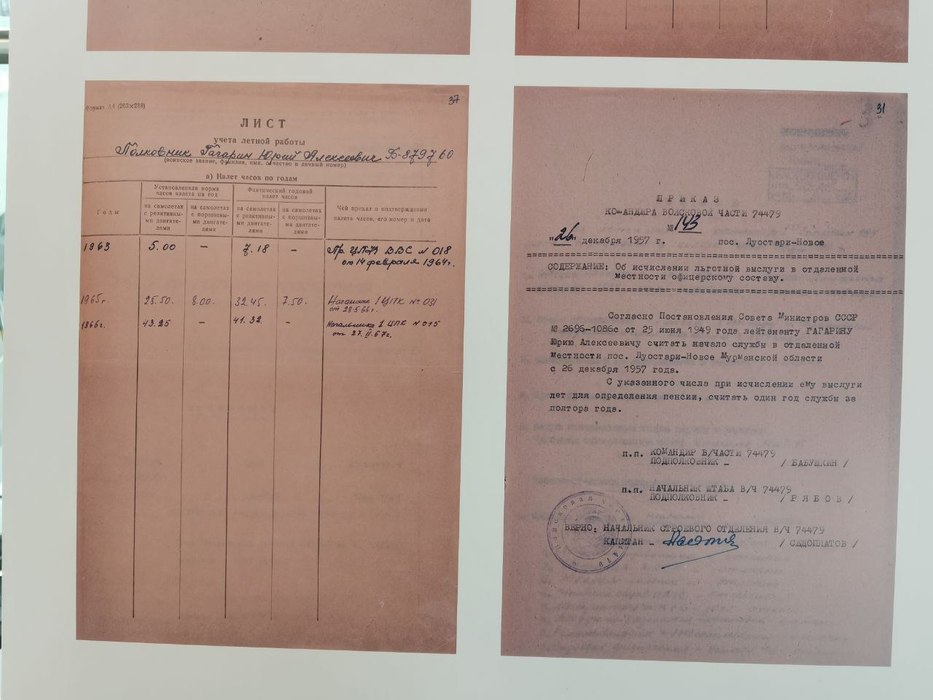 37
(203×288)
ЛИСТ
учета летной работы
Полковник Гагарин Юрий Алексеевич Б-879760
(воинское звание, фамилия, имя, отчество и личный номер)
а) Налет часов по годам
Годы
Установленная норма часов налета на год
Фактический годовой налет часов
Чей приказ о подтверждении налета часов, его номер и дата
на самолетах с реактивными двигателями
на самолетах с поршневыми двигателями
на самолетах с реактивными двигателями
на самолетах с поршневыми двигателями
1963 5.00 – 7.18 – Пр. ЦПК ВВС № 018
от 14 февраля 1964г.
1965г. 25.50 8.00 32.45 7.50 1 ЦПК № 031
от 28.5.66г.
1966г. 43.25 – 41.32 – Начальника 1 ЦПК № 015
от 27. 67г.
31
ПРИКАЗ
КОМАНДИРА ВОЙСКОВОЙ ЧАСТИ 74479
№ 143
"26" декабря 1957 г. пос. Луостари-Новое
СОДЕРЖАНИЕ: Об исчислении льготной выслуги в отдаленной
местности офицерскому составу.
Согласно Постановления Совета Министров СССР
№ 2696-1086с от 25 июня 1949 года лейтенанту ГАГАРИНУ
Юрию Алексеевичу считать начало службы в отдаленной
местности пос. Луостари-Новое Мурманской области
с 26 декабря 1957 года.
С указанного числа при исчислении ему выслуги
лет для определения пенсии, считать один год службы за
полтора года.
п.п. КОМАНДИР В/ЧАСТИ 74479
ПОДПОЛКОВНИК – / БАБУШКИН /
п.п. НАЧАЛЬНИК ШТАБА В/Ч 74479
ПОДПОЛКОВНИК – / РЯБОВ /
ВЕРНО: НАЧАЛЬНИК СТРОЕВОГО ОТДЕЛЕНИЯ В/Ч 74479
КАПИТАН – / СЕДОПЛАТОВ /